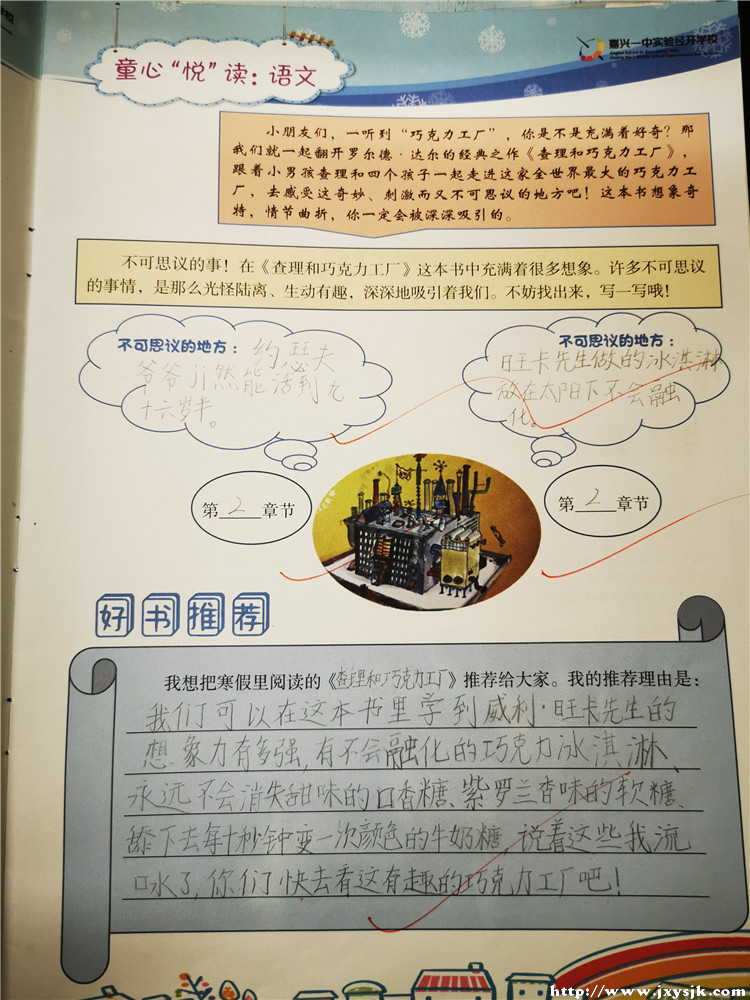 嘉兴一中实验经开学校
童心“悦”读：语文
小朋友们，一听到“巧克力工厂”，你是不是充满着好奇？那
我们就一起翻开罗尔德·达尔的经典之作《查理和巧克力工厂》，
跟着小男孩查理和四个孩子一起走进这家全世界最大的巧克力工
厂，去感受这奇妙、刺激而又不可思议的地方吧！这本书想象奇
特，情节曲折，你一定会被深深吸引的。
不可思议的事！在《查理和巧克力工厂》这本书中充满着很多想象。许多不可思议
的事情，是那么光怪陆离、生动有趣，深深地吸引着我们。不妨找出来，写一写哦！
不可思议的地方：约瑟夫
爷爷ji然能活到九
十六岁半。
不可思议的地方：
旺卡先生做的冰淇淋
放在太阳下不会融
化。
第2章节
第2章节
好书推荐
我想把寒假里阅读的《查理和巧克力工厂》推荐给大家。我的推荐理由是：
我们可以在这本书里学到威利·旺卡先生的
想象力有多强，有不会融化的巧克力冰淇淋、
永远不会消失甜味的口香糖、紫罗兰香味的软糖、
舔下去每十秒钟变一次颜色的牛奶糖，说着这些我流
口水了，你们快去看这有趣的巧克力工厂吧！
http://www.jxysjk.com/